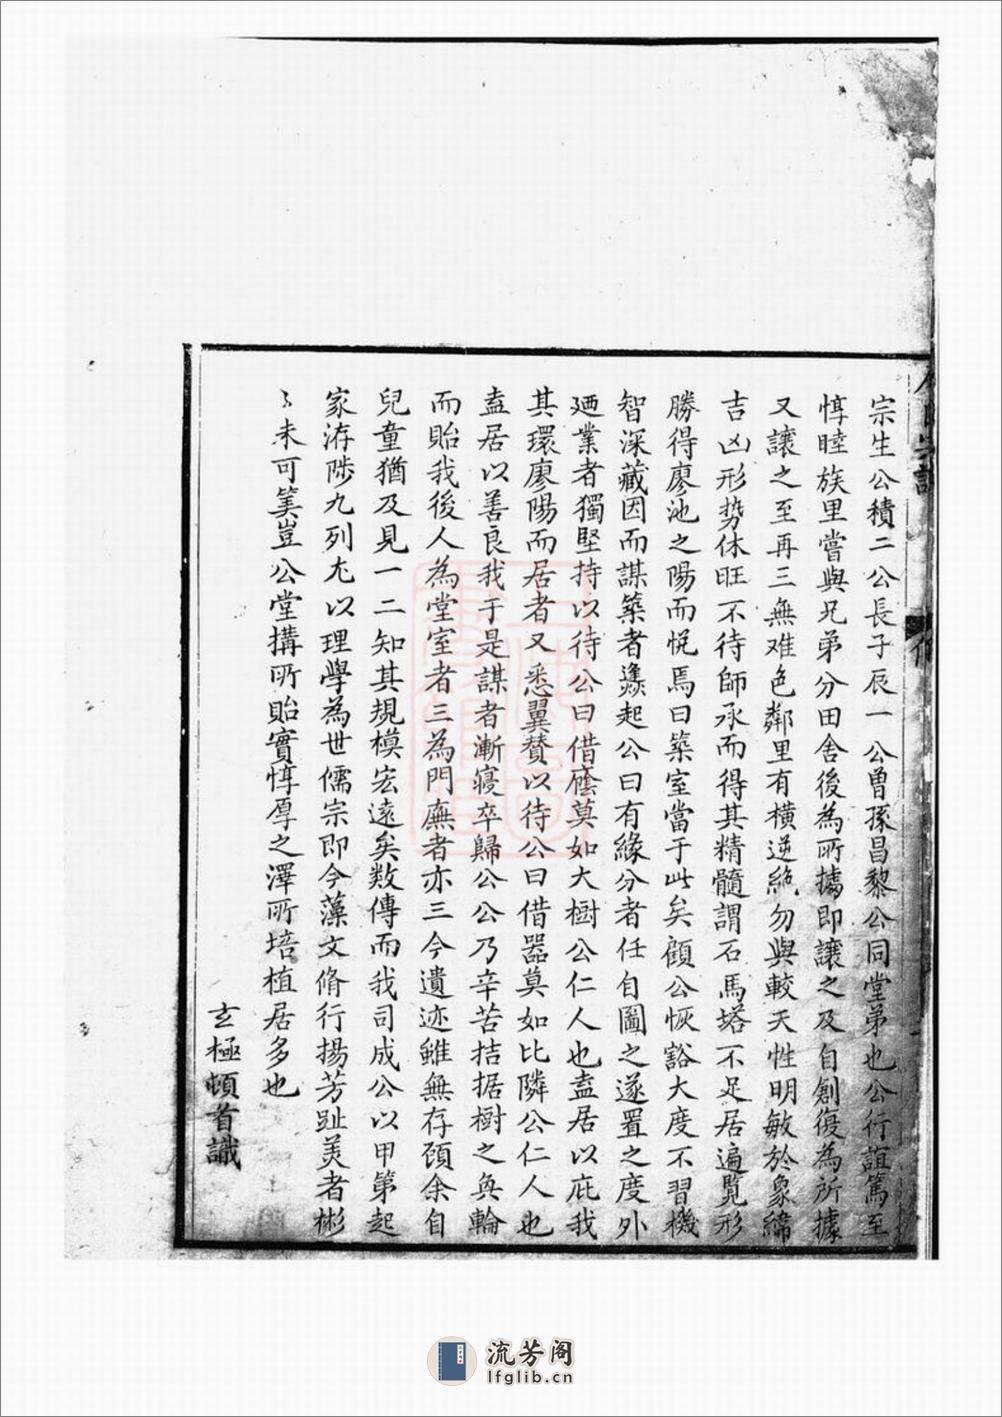 宗生公積二公長子辰一公曾孫昌黎公同堂弟也公行誼篤至
惇睦族里嘗與兄弟分田舍後為所攜即讓之及自創復為所據
又讓之至再三無难色鄰里有橫逆絶勿與較天性明敏於象緯
吉凶形势休旺不待師承而得其精髓謂石馬塔不足居遍覽形
勝得廖池之陽而悅焉曰築室當于此矣顧公恢豁大度不習機
智深藏因而謀築者蠭起公曰有緣分者任自圖之遂置之度外
廼業者獨堅持以待公曰借廕莫如大樹公仁人也盍居以庇我
其環廖陽而居者又悉翼賛以待公曰借噐莫如比隣公仁人也
盍居以善良我于是謀者漸寢卒歸公公乃辛苦拮据樹之奐輪
而貽我後人為堂室者三為門廡者亦三今遺迹雖無存頋余自
兒童猶及見一二知其規模宏遠矣数傳而我司成公以甲第起
家洊陟九列尤以理學為世儒宗即今藻文脩行揚芳趾羙者彬
〻未可筭豈公堂搆所貽實惇厚之澤所培植居多也
玄極頓首識
流芳阁
lfglib.cn